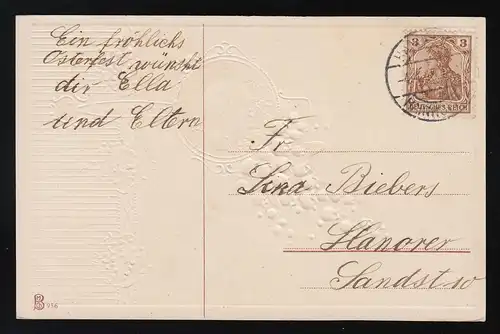 Ein fröhlichs
Osterfest wünscht
dir Ella
und Eltern
3 3
DEUTSCHES REICH
Fr
Lina Biebers
Hanover
Sandstr 10
B 956